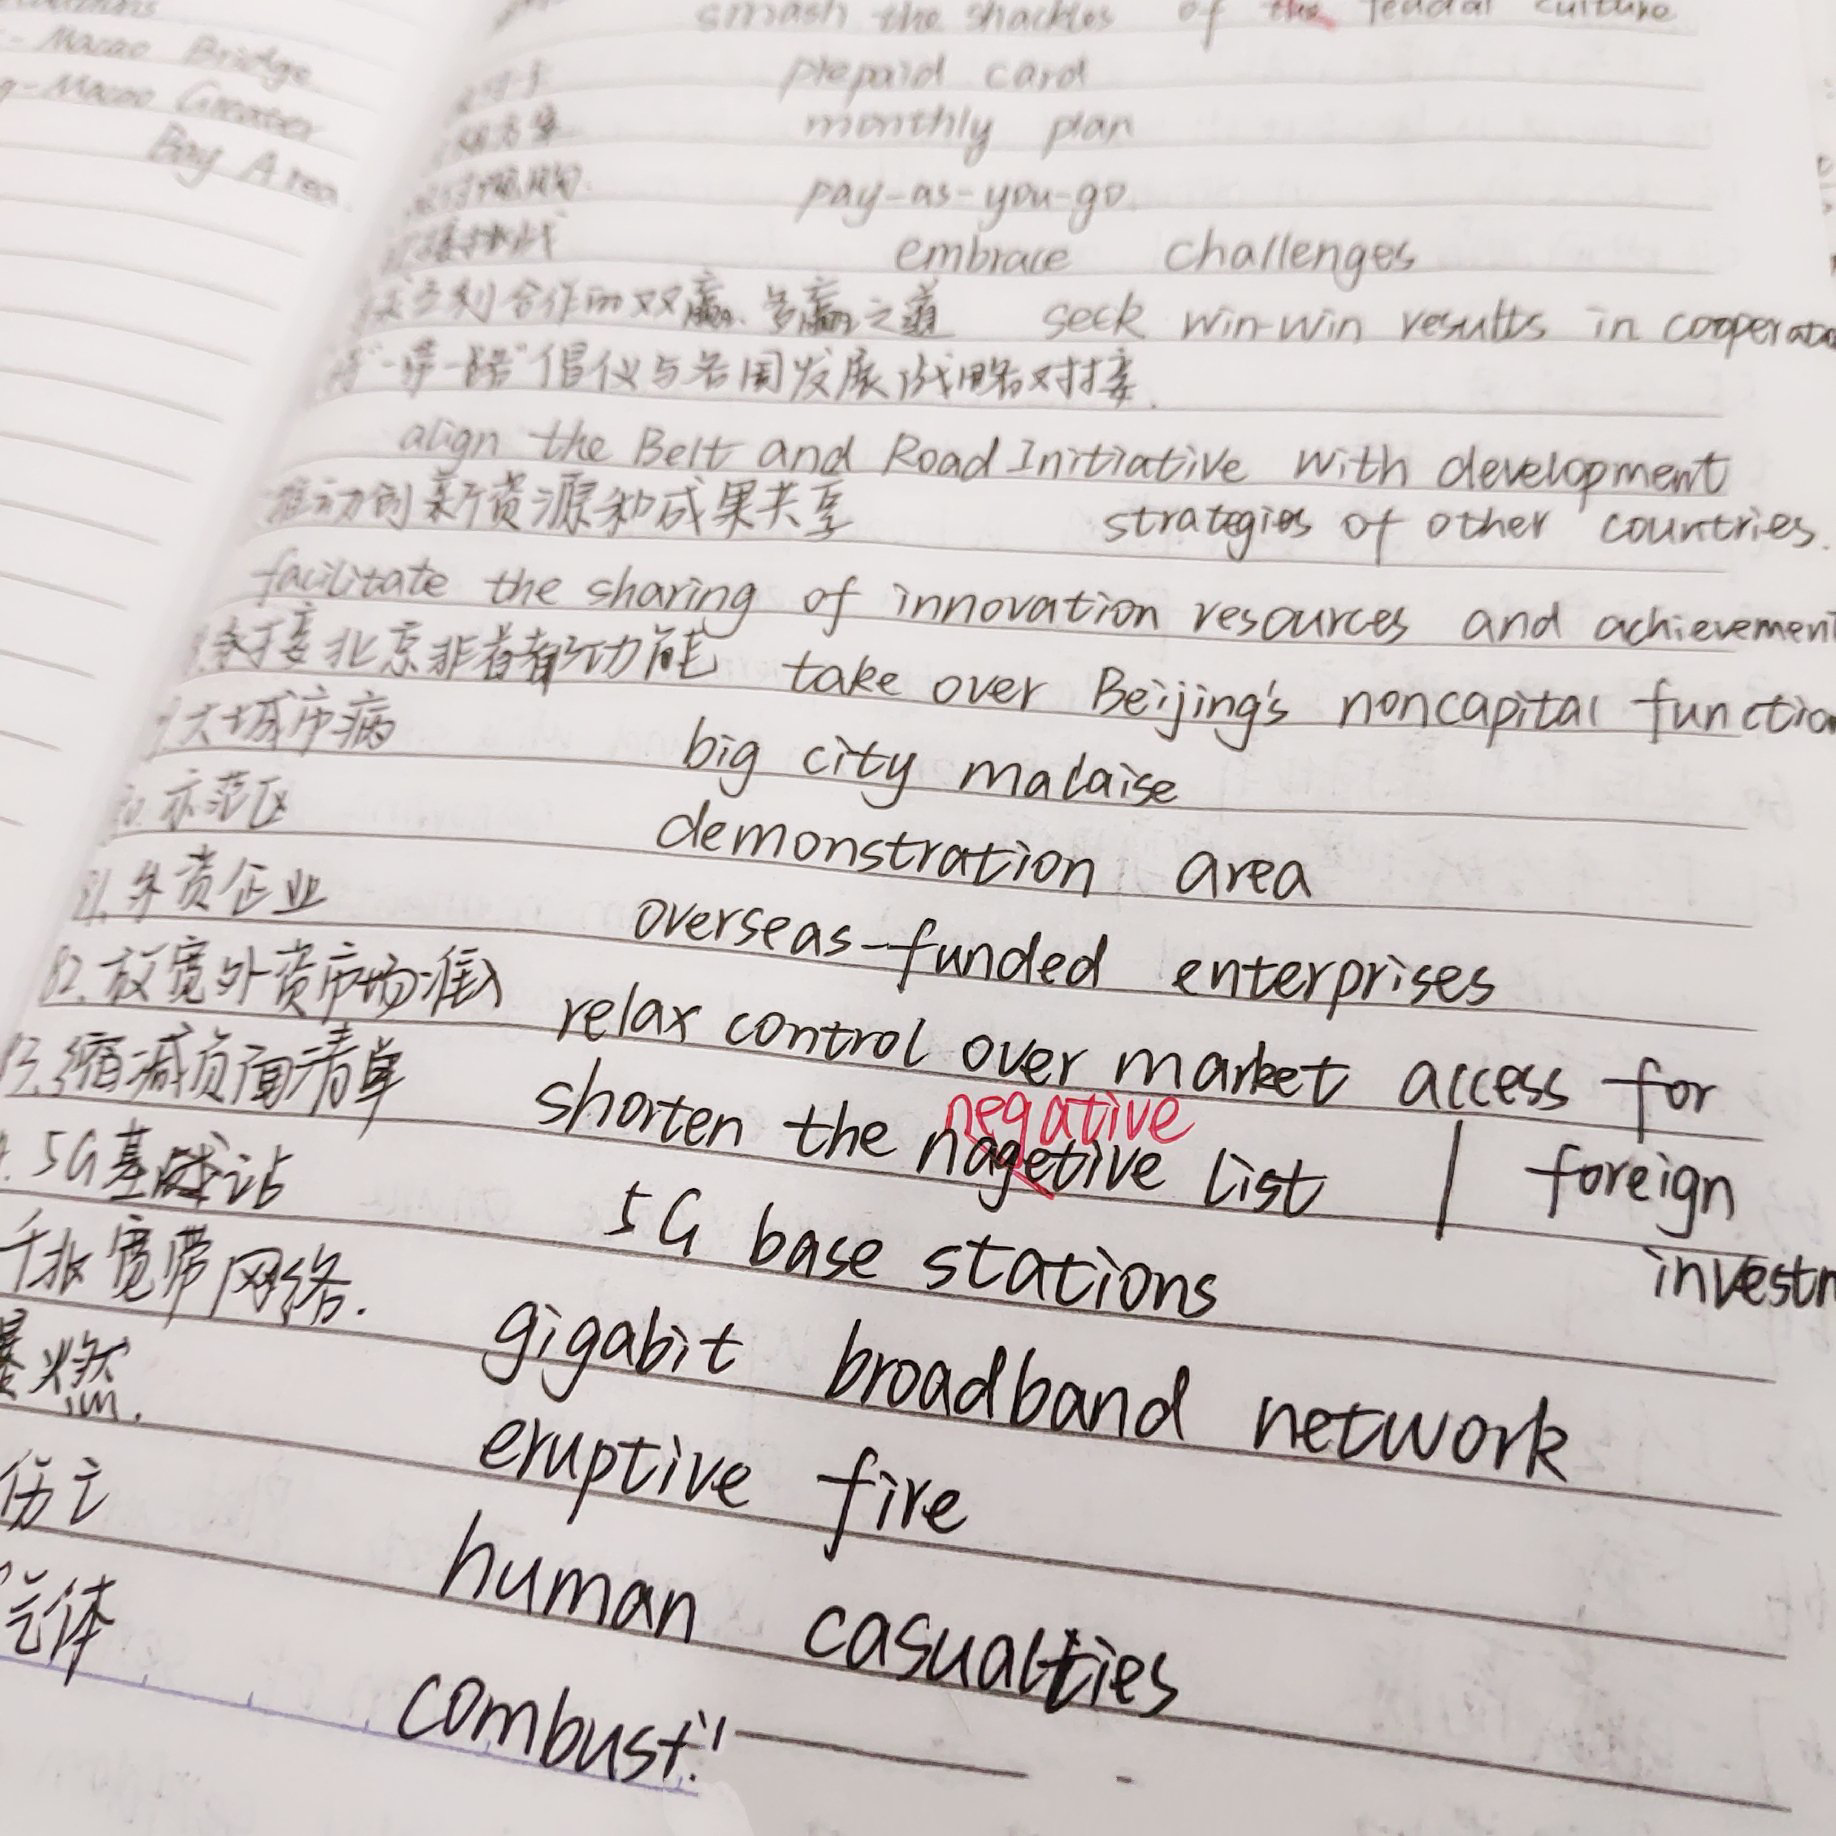 - Macao Bridge
g-Macao Greater
Bay Area
smash the shackles of the feudal culture
prepaid card
monthly plan
pay-as-you-go
迎接挑战 embrace challenges
合作的双赢、多赢之道 seek win-win results in cooperat
将"一带一路"倡仪与各国发展战略对接.
align the Belt and Road Initiative with development
推动创新资源和成果共享 strategies of other countries.
facilitate the sharing of innovation resources and achievement
承接北京非首都功能 take over Beijing's noncapital function
大城市病 big city malaise
示范区 demonstration area
81. 外资企业 overseas-funded enterprises
82. 放宽外资市场准入 relax control over market access for
83. 缩减负面清单 shorten the nagetive list | foreign
negative
5G基础站 5G base stations investm
千兆宽带网络. gigabit broadband network
爆燃. eruptive fire
伤亡 human casualties
气体 combusti